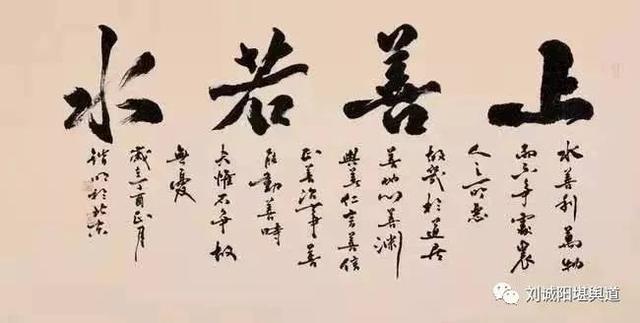 上善若水
水善利萬物
而不爭處眾
人之所惡
故幾於道居
善地心善淵
與善仁言善信
正善治事善
能動善時
夫惟不爭故
無憂
歲在丁酉正月
於北京
刘诚阳堪舆道